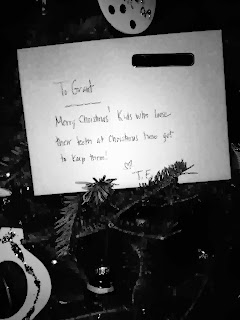 To Grant
Merry Christmas! Kids who lose
their teeth at Christmas time get
to keep them!
♡ T.F.